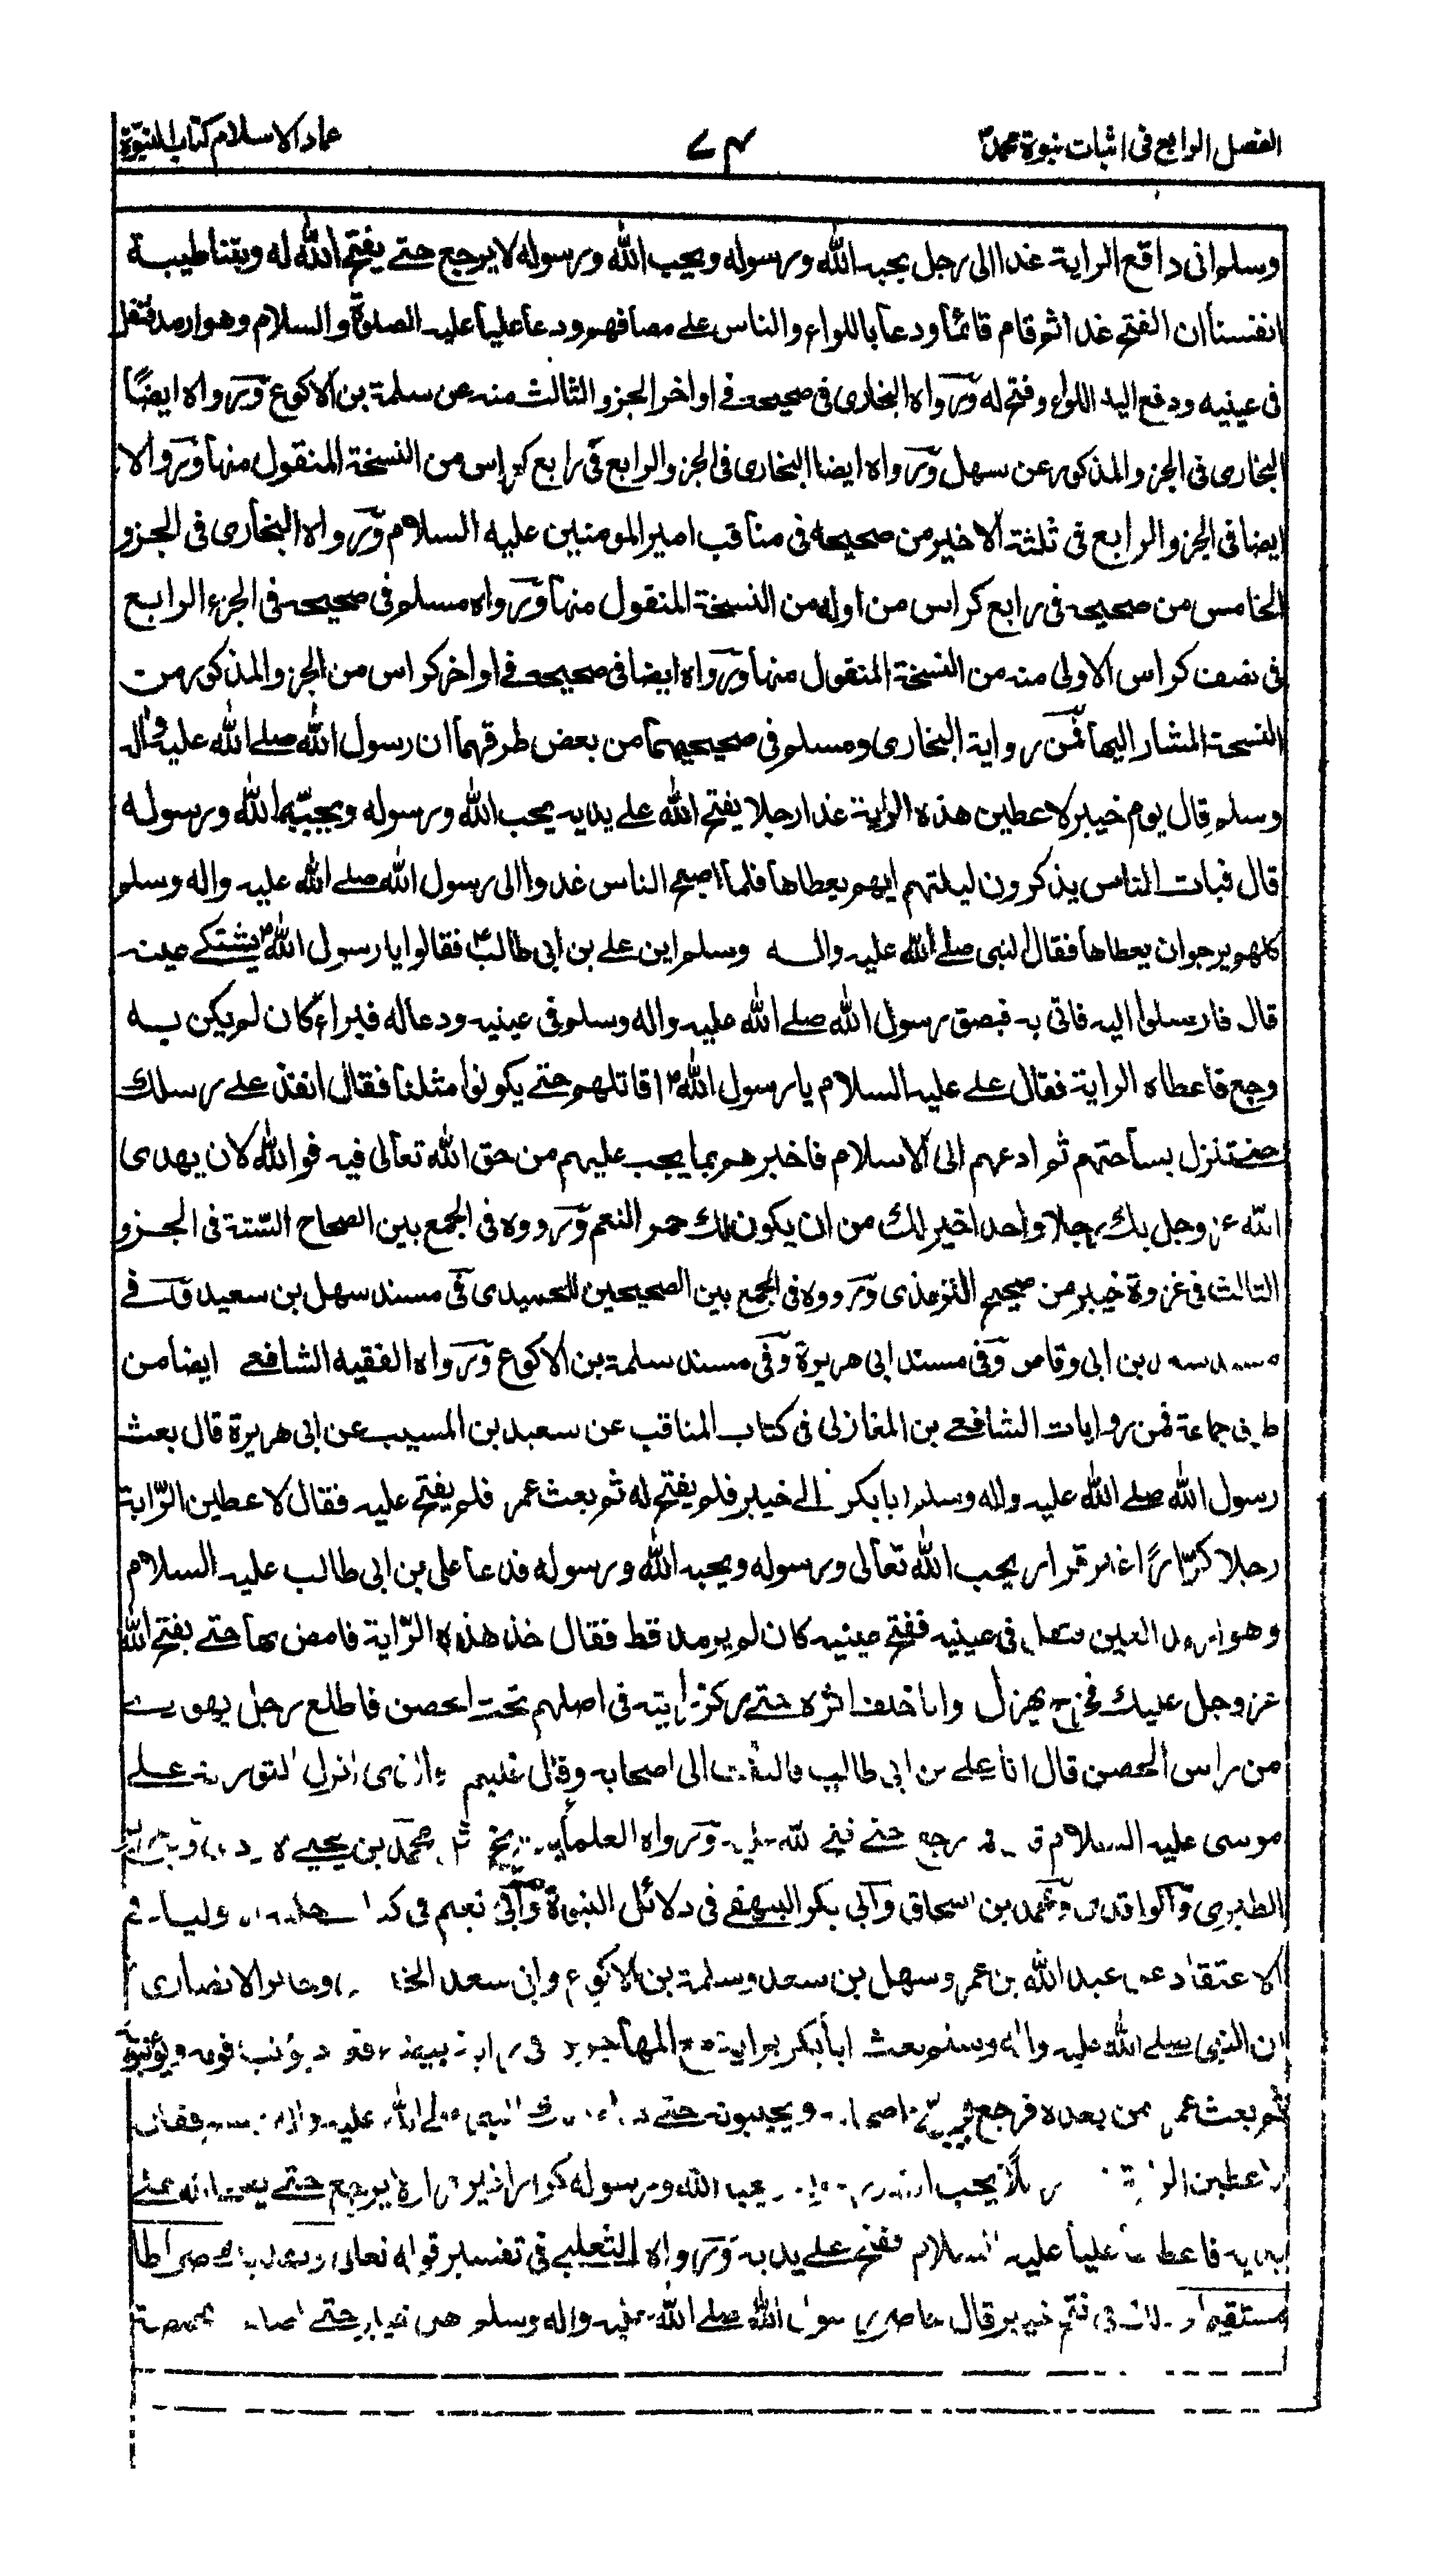 الفصل الرابع فى اثبات نبوة محمدؐ
۷۴
عماد الاسلام كتاب النبوّة
وسلم انى دافع الراية غدا الى رجل يحبه الله ورسوله ويحب الله ورسوله لا يرجع حتے يفتح الله له وبتنا طيبة
انفسنا ان الفتح غدا ثم قام قائماً ودعا باللواء والناس علے مصافهم ودعا علياً عليه الصلوة والسلام وهو ارمد فتفل
فى عينيه ودفع اليه اللواء وفتح له ورواه البخارى فى صحيحه فے اواخر الجزو الثالث منه عن سلمة بن الاكوع ورواه ايضًا
البخارى فى الجزو المذكور عن سهل ورواه ايضا البخارى فى الجزو الرابع فى رابع كراس من النسخة المنقول منها ورواه
ايضا فى الجزو الرابع فى ثلثة الاخير من صحيحه فى مناقب امير المومنين عليه السلام ورواه البخارى فى الجزو
الخامس من صحيحه فى رابع كراس من اوله من النسخة المنقول منها ورواه مسلم فى صحيحه فى الجزء الرابع
فى نصف كراس الاولى منه من النسخة المنقول منها ورواه ايضا فى صحيحه فے اواخر كراس من الجزو المذكور من
النسخة المشار اليها فمن رواية البخارى ومسلم فى صحيحيهما من بعض طرقهما ان رسول الله صلے الله عليه واله
وسلم قال يوم خيبر لاعطين هذه الراية غدا رجلا يفتح الله علے يديه يحب الله ورسوله ويحبّه الله ورسوله
قال فبات الناس يذكرون ليلتهم ايهم يعطاها فلما اصبح الناس غدوا الى رسول الله صلے الله عليه واله وسلم
كلهم يرجو ان يعطاها فقال النبى صلے الله عليه واله وسلم اين علے بن ابى طالبؑ فقالوا يا رسول اللهؐ يشتكے عينه
قال فارسلوا اليه فاتى به فبصق رسول الله صلے الله عليه واله وسلم فى عينيه ودعا له فبراء كان لم يكن به
وجع فاعطاه الراية فقال علے عليه السلام يا رسول اللهؐ اقاتلهم حتے يكونوا مثلنا فقال انفذ علے رسلك
حتے تنزل بساحتهم ثم ادعهم الى الاسلام فاخبرهم بما يجب عليهم من حق الله تعالى فيه فوالله لان يهدى
الله عز وجل بك رجلا واحدا خير لك من ان يكون لك حمر النعم ورووه فى الجمع بين الصحاح الستة فى الجزو
الثالث فى غزوة خيبر من صحيح الترمذى ورووه فى الجمع بين الصحيحين للحميدى فى مسند سهل بن سعيد وفے
مسند سعد بن ابى وقاص وفى مسند ابى هريرة وفى مسند سلمة بن الاكوع ورواه الفقيه الشافعے ايضا من
طرق جماعة فمن روايات الشافعے بن المغازلى فى كتاب المناقب عن سعيد بن المسيب عن ابى هريرة قال بعث
رسول الله صلے الله عليه واله وسلم ابا بكر الے خيبر فلم يفتح له ثم بعث عمر فلم يفتح عليه فقال لاعطين الرّاية
رجلا كرّاراً غير فرار يحب الله تعالى ورسوله ويحبه الله ورسوله فدعا على بن ابى طالب عليه السلام
وهو ارمد العين فتفل فى عينيه ففتح عينيه كان لم يرمد قط فقال خذ هذه الرّاية فامض بها حتے يفتح الله
عز وجل عليك فخرج يهرول وانا خلف اثره حتے ركز رايته فى اصلهم تحت الحصن فاطلع رجل يهودے
من راس الحصن قال انا علے بن ابى طالب فالتفت الى اصحابه وقال غلبتم والذى انزل التورية علے
موسى عليه السلام رجع حتے ورواه العلماء محمد بن يحيے
الطبرى والواقدى ومحمد بن اسحاق وابى بكر البيهقے فى دلائل النبوة وابى نعيم فى حلية الاولياء
الاعتقاد عن عبد الله بن عمر وسهل بن سعد وسلمة بن الاكوع وابى سعد وجابر الانصارى
ان النبى صلے الله عليه واله وسلم بعث ابا بكر براية مع المهاجرين قومه ويؤنبونه
ثم بعث عمر من بعده فرجع ويجبنونه حتے النبى صلے الله عليه واله فقال
لاعطين الراية يحب الله ورسوله كرارا غير فرار لا يرجع حتے يفتح الله علے
يديه فاعطاها علياً عليه السلام ففتح علے يديه ورواه الثعلبے فى تفسير قوله تعالى صراطا
مستقيما وذلك فى فتح خيبر قال حاصر رسول الله صلے الله عليه واله وسلم خيبر حتے مخمصة